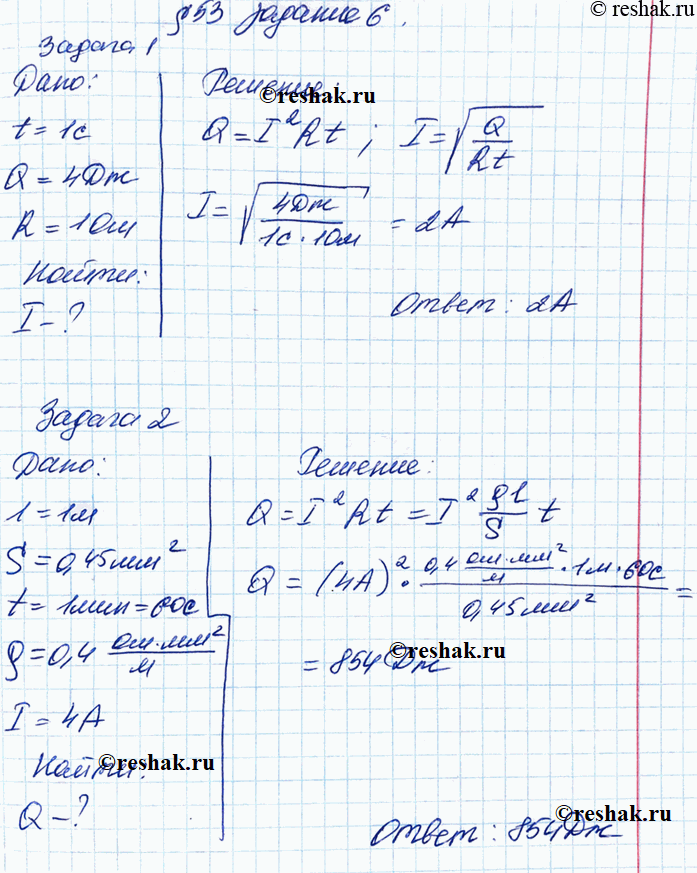 © reshak.ru
§53 Задание 6.
Задача 1
Дано:
t = 1с
Q = 4Дж
R = 1Ом
Найти:
I - ?
Решение:
©reshak.ru
Q = I²Rt ; I = √(Q/Rt)
I = √(4Дж/1с·1Ом) = 2А
Ответ: 2А
Задача 2
Дано:
l = 1м
S = 0,45мм²
t = 1мин = 60с
ρ = 0,4 Ом·мм²/м
I = 4А
Найти:
©reshak.ru
Q - ?
Решение:
Q = I²Rt = I² ρl/S t
Q = (4А)² · 0,4 Ом·мм²/м · 1м · 60с / 0,45мм² =
= 854 Дж
©reshak.ru
Ответ: 854Дж